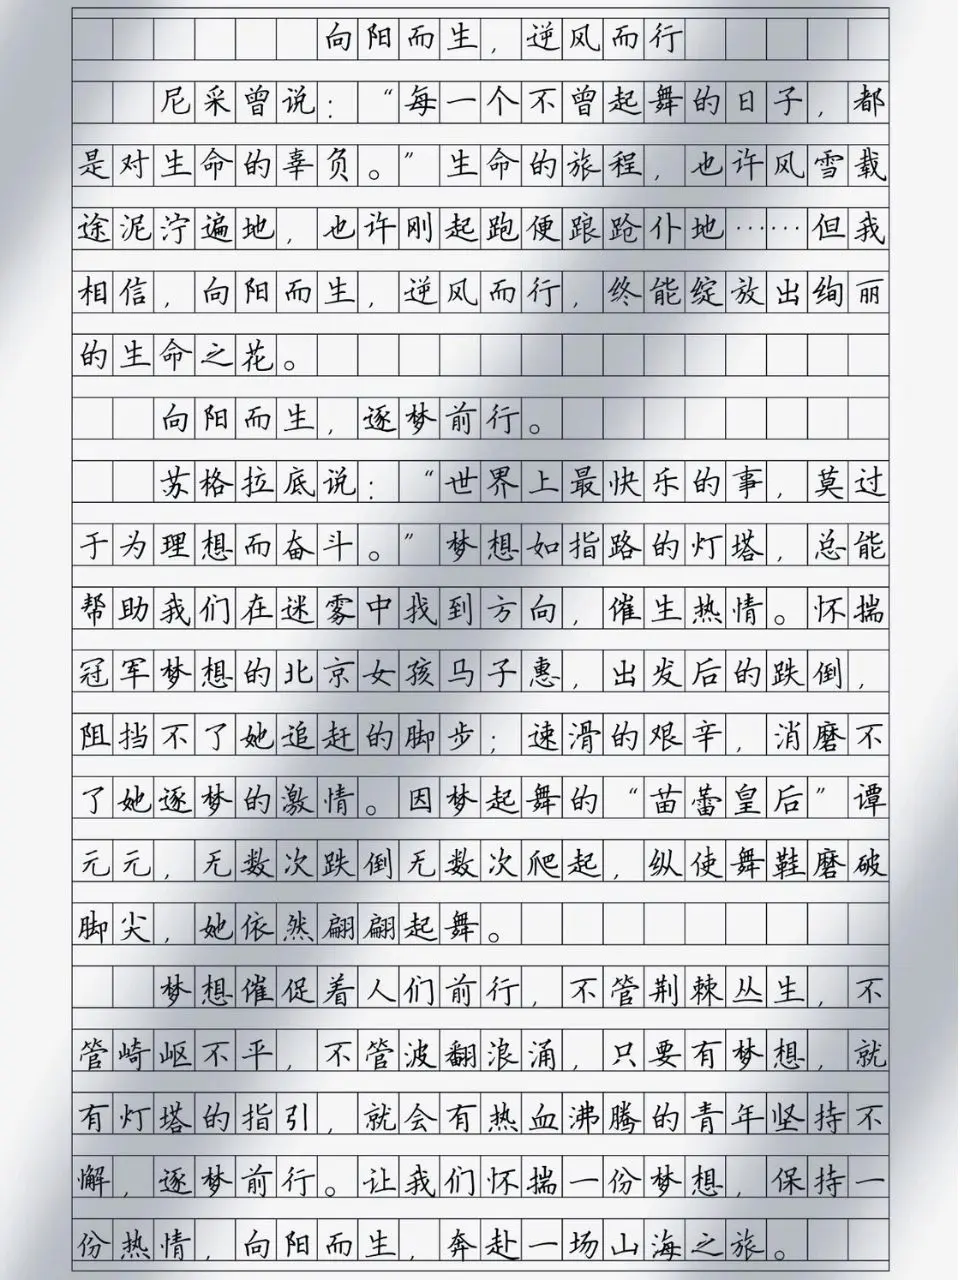 向阳而生，逆风而行
尼采曾说：“每一个不曾起舞的日子，都
是对生命的辜负。”生命的旅程，也许风雪载
途泥泞遍地，也许刚起跑便踉跄仆地……但我
相信，向阳而生，逆风而行，终能绽放出绚丽
的生命之花。
向阳而生，逐梦前行。
苏格拉底说：“世界上最快乐的事，莫过
于为理想而奋斗。”梦想如指路的灯塔，总能
帮助我们在迷雾中找到方向，催生热情。怀揣
冠军梦想的北京女孩马子惠，出发后的跌倒，
阻挡不了她追赶的脚步；速滑的艰辛，消磨不
了她逐梦的激情。因梦起舞的“苗蕾皇后”谭
元元，无数次跌倒无数次爬起，纵使舞鞋磨破
脚尖，她依然翩翩起舞。
梦想催促着人们前行，不管荆棘丛生，不
管崎岖不平，不管波翻浪涌，只要有梦想，就
有灯塔的指引，就会有热血沸腾的青年坚持不
懈，逐梦前行。让我们怀揣一份梦想，保持一
份热情，向阳而生，奔赴一场山海之旅。